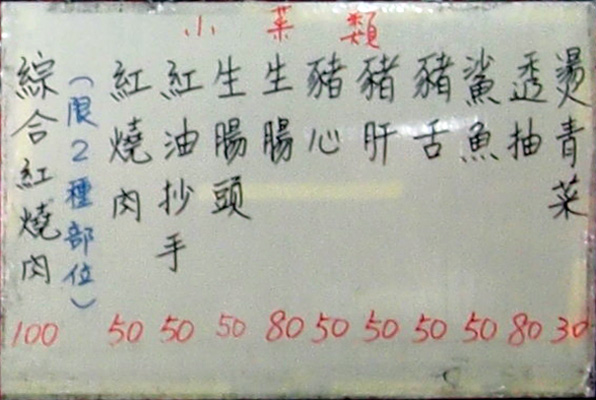 小菜類
燙青菜 30
透抽 80
鯊魚 50
豬舌 50
豬肝 50
豬心 50
生腸 80
生腸頭 50
紅油抄手 50
紅燒肉 50
(限2種部位)
綜合紅燒肉 100